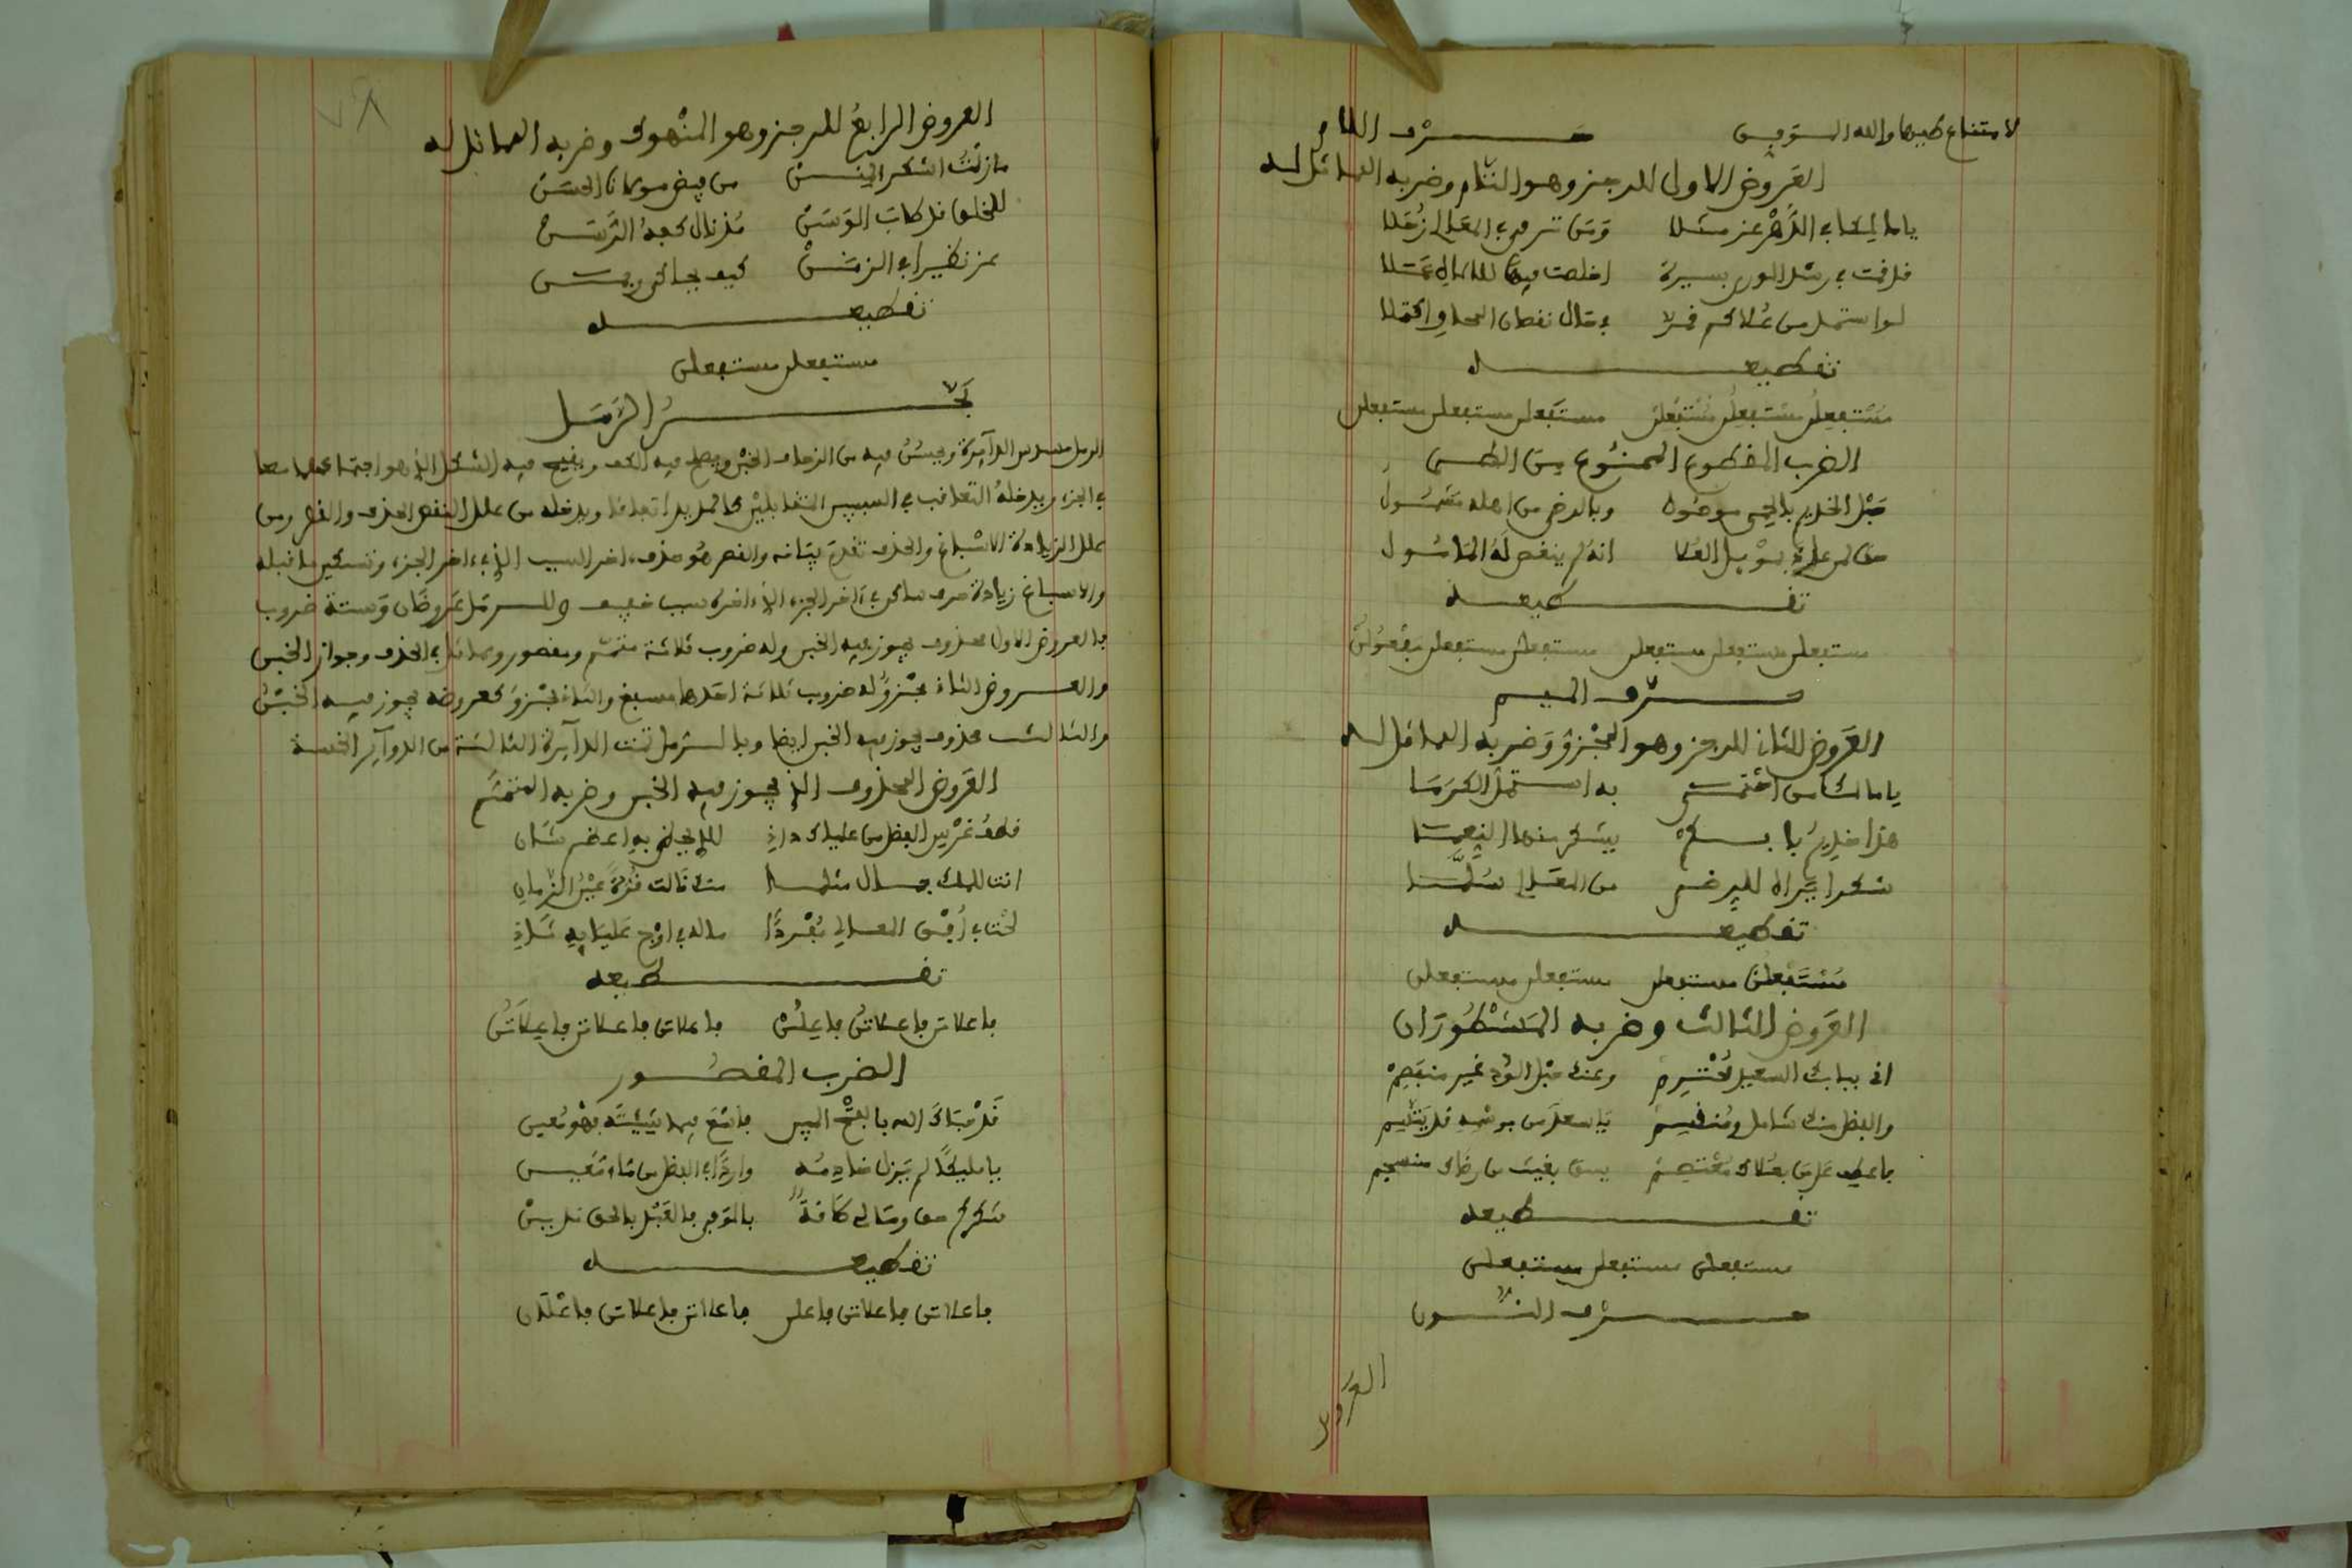 لامتناع طيها والله
حرف اللام
العروض الاول للرجز وهو التام وضربه المماثل له
ياما لكا في الدهر عز مثلا ومن ترقى في المعالي زحلا
قد قمت في رشد الورى بسيرة اخلصت فيها للاله عملا
لو استمد من علاكم قمر لا في حال نقصان المحاق اكتملا
تقطيعه
مستفعلن مستفعلن مستفعلن مستفعلن مستفعلن مستفعلن
الضرب المقطوع الممنوع من الطي
حبل الخديم بالحمى موصول وبالرضى من اهله مشمول
انه لم ينقص له المأمول
تقطيعه
مستفعلن مستفعلن مستفعلن مستفعلن مستفعلن مفعولن
حرف الميم
العروض الثاني للرجز وهو المجزو وضربه المماثل له
يا مالكا من اختمى به استمد الكرما
هذا خديم يشكر منها النعما
شكرا يراه للرضى من المعالي سلما
تقطيعه
مستفعلن مستفعلن مستفعلن مستفعلن
العروض الثالث وضربه المشطوران
اني ببابك السعيد محترم وعندك حبل الود غير منفصم
والفضل منك شامل ومنقسم يا سعد من برسمه قد يتسم
فاعطف على من بعلاك معتصم يسقى بغيث من رضاك منسجم
تقطيعه
مستفعلن مستفعلن مستفعلن
حرف النون
العروض
٧٨
العروض الرابع للرجز وهو المنهوك وضربه المماثل له
مازلت اشكر المنن من فيض مولانا الحسن
للخلق قد طاب الوسن مذ نال كفه الرسن
عز نظيرا في الزمن كيف يجاكى ويمن
تقطيعه
مستفعلن مستفعلن
بحر الرمل
الرمل مسدس الدائرة ويحسن فيه من الزحاف الخبن ويصلح فيه الكف ويقبح فيه الشكل الذي هو اجتماعهما معا
في الجزء ويدخله التعاقب في السببين المتقابلين كالمديد اتفاقا ويدخله من علل النقص الحذف والقصر ومن
علل الزيادة الاسباغ والحذف تقدم بيانه والقصر هو حذف اخر السبب الذي في اخر الجزء وتسكين ما قبله
والاسباغ زيادة حرف ساكن في آخر الجزء الذي اخره سبب خفيف وللرمل عروضان وستة ضروب
فالعروض الاول محذوف يجوز فيه الخبن وله ضروب ثلاثة متمم ومقصور ومماثل في الحذف وجواز الخبن
والعروض الثاني مجزو له ضروب ثلاثة احدها مسبغ والثاني مجزو كعروضه يجوز فيه الخبن
والثالث محذوف يجوز فيه الخبن ايضا وبالرمل تمت الدائرة الثالثة من الدوائر الخمسة
العروض المحذوف الذي يجوز فيه الخبن وضربه المتمم
قطف غرس الفضل من علياك دان للذي اضحى به اعظم شان
انت للملك جمال مثلما منك نالت قرة عين الزمان
لحت في افق المعالي مفردا ماله في اوج علياه ثان
تقطيعه
فاعلاتن فاعلاتن فاعلن فاعلاتن فاعلاتن فاعلاتن
الضرب المقصور
قد حباك الله بالفتح المبين فاصنع فيما شئته فهو معين
يا مليكا لم يزل خادمه واردا في الفضل من ماء معين
شكركم حق ومالي طاقة بالوفى فالقبل بالحق قمين
تقطيعه
فاعلاتن فاعلاتن فاعلن فاعلاتن فاعلاتن فاعلان